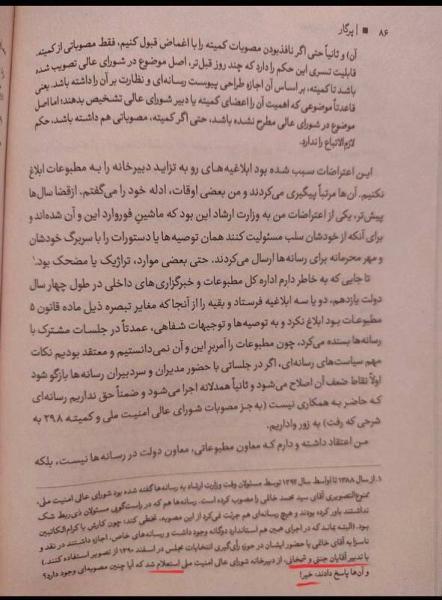 ۸۶ ■ | پرگار
آن) و ثانیاً حتی اگر نافذبودن مصوبات کمیته را با اغماض قبول کنیم، فقط مصوباتی از کمیته
قابلیت تسری این حکم را دارد که چند روز قبل‌تر، اصل موضوع در شورای عالی تصویب شده
باشد تا کمیته، بر اساس آن اجازه طراحی پیوست رسانه‌ای و نظارت بر آن را داشته باشد. یعنی
قاعدتاً موضوعی که اهمیت آن را اعضای کمیته یا دبیر شورای عالی تشخیص بدهند؛ اما اصل
موضوع در شورای عالی مطرح نشده باشد، حتی اگر کمیته، مصوباتی هم داشته باشد، حکم
لازم‌الاتباع را ندارد.
این اعتراضات سبب شده بود ابلاغیه‌های رو به تزاید دبیرخانه را به مطبوعات ابلاغ
نکنیم. آن‌ها مرتباً پیگیری می‌کردند و من بعضی اوقات، ادله خود را می‌گفتم. ازقضا سال‌ها
پیش‌تر، یکی از اعتراضات من به وزارت ارشاد این بود که ماشین فوروارد این و آن شده‌اند و
برای آنکه از خودشان سلب مسئولیت کنند همان توصیه‌ها یا دستورات را با سربرگ خودشان
و مهر محرمانه برای رسانه‌ها ارسال می‌کردند. حتی بعضی موارد، تراژیک یا مضحک بود.۱
تا جایی که به خاطر دارم اداره کل مطبوعات و خبرگزاری‌های داخلی در طول چهار سال
دولت یازدهم، دو یا سه ابلاغیه فرستاد و بقیه را از آنجا که مغایر تبصره ذیل ماده قانون ۵
مطبوعات بود ابلاغ نکرد و به توصیه‌ها و توجیهات شفاهی، عمدتاً در جلسات مشترک با
رسانه‌ها بسنده می‌کرد، چون مطبوعات را آمربرِ این و آن نمی‌دانستیم و معتقد بودیم نکات
مهم سیاست‌های رسانه‌ای، اگر در جلساتی با حضور مدیران و سردبیران رسانه‌ها بازگو شود
اولاً نقاط ضعف آن اصلاح می‌شود و ثانیاً همدلانه اجرا می‌شود و ضمناً حق نداریم رسانه‌ای
که حاضر به همکاری نیست (به جز مصوبات شورای عالی امنیت ملی و کمیته ۲۹۸ به
شرحی که رفت) به زور واداریم.
من اعتقاد داشته و دارم که معاون مطبوعاتی، معاون دولت در رسانه‌ها نیست، بلکه
۱. از سال ۱۳۸۸ تا اواسط سال ۱۳۹۲ توسط مسئولان وقت وزارت ارشاد به رسانه‌ها گفته شده بود شورای عالی امنیت ملی،
ممنوع‌التصویری آقای سید محمد خاتمی را مصوب کرده است. رسانه‌ها هم که در راست‌گویی مسئولان ذی‌ربط شک
نداشتند باور کرده بودند و هیچ رسانه‌ای هم جرئت نمی‌کرد از این مصوبه، تخطی کند؛ چون کارش با کرام‌الکاتبین
بود. (البته بماند که در اجرای همین هم استاندارد دوگانه وجود داشت و رسانه‌های خاص، اجازه داشتند در نقد و
ناسزا به آقای خاتمی با حضور ایشان در حوزه رأی‌گیری انتخابات مجلس در اسفند ۱۳۹۰ از تصویر استفاده کنند.)
با تدبیر آقایان جنتی و شمخانی، از دبیرخانه شورای عالی امنیت ملی استعلام شد که آیا چنین مصوبه‌ای وجود دارد؟
و آن‌ها پاسخ دادند، خیر!